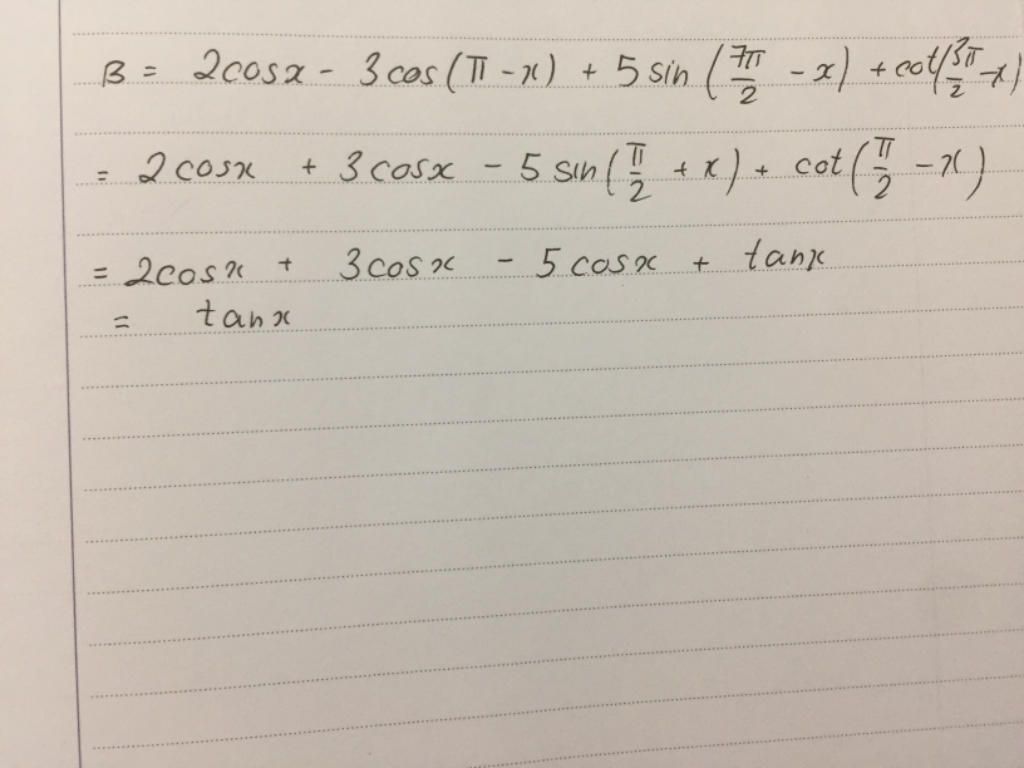 B = 2cosx - 3cos(π - x) + 5 sin (7π/2 - x) + cot(3π/2 - x)
= 2cosx + 3cosx - 5 sin(π/2 + x) + cot(π/2 - x)
= 2cosx + 3cosx - 5cosx + tanx
= tanx